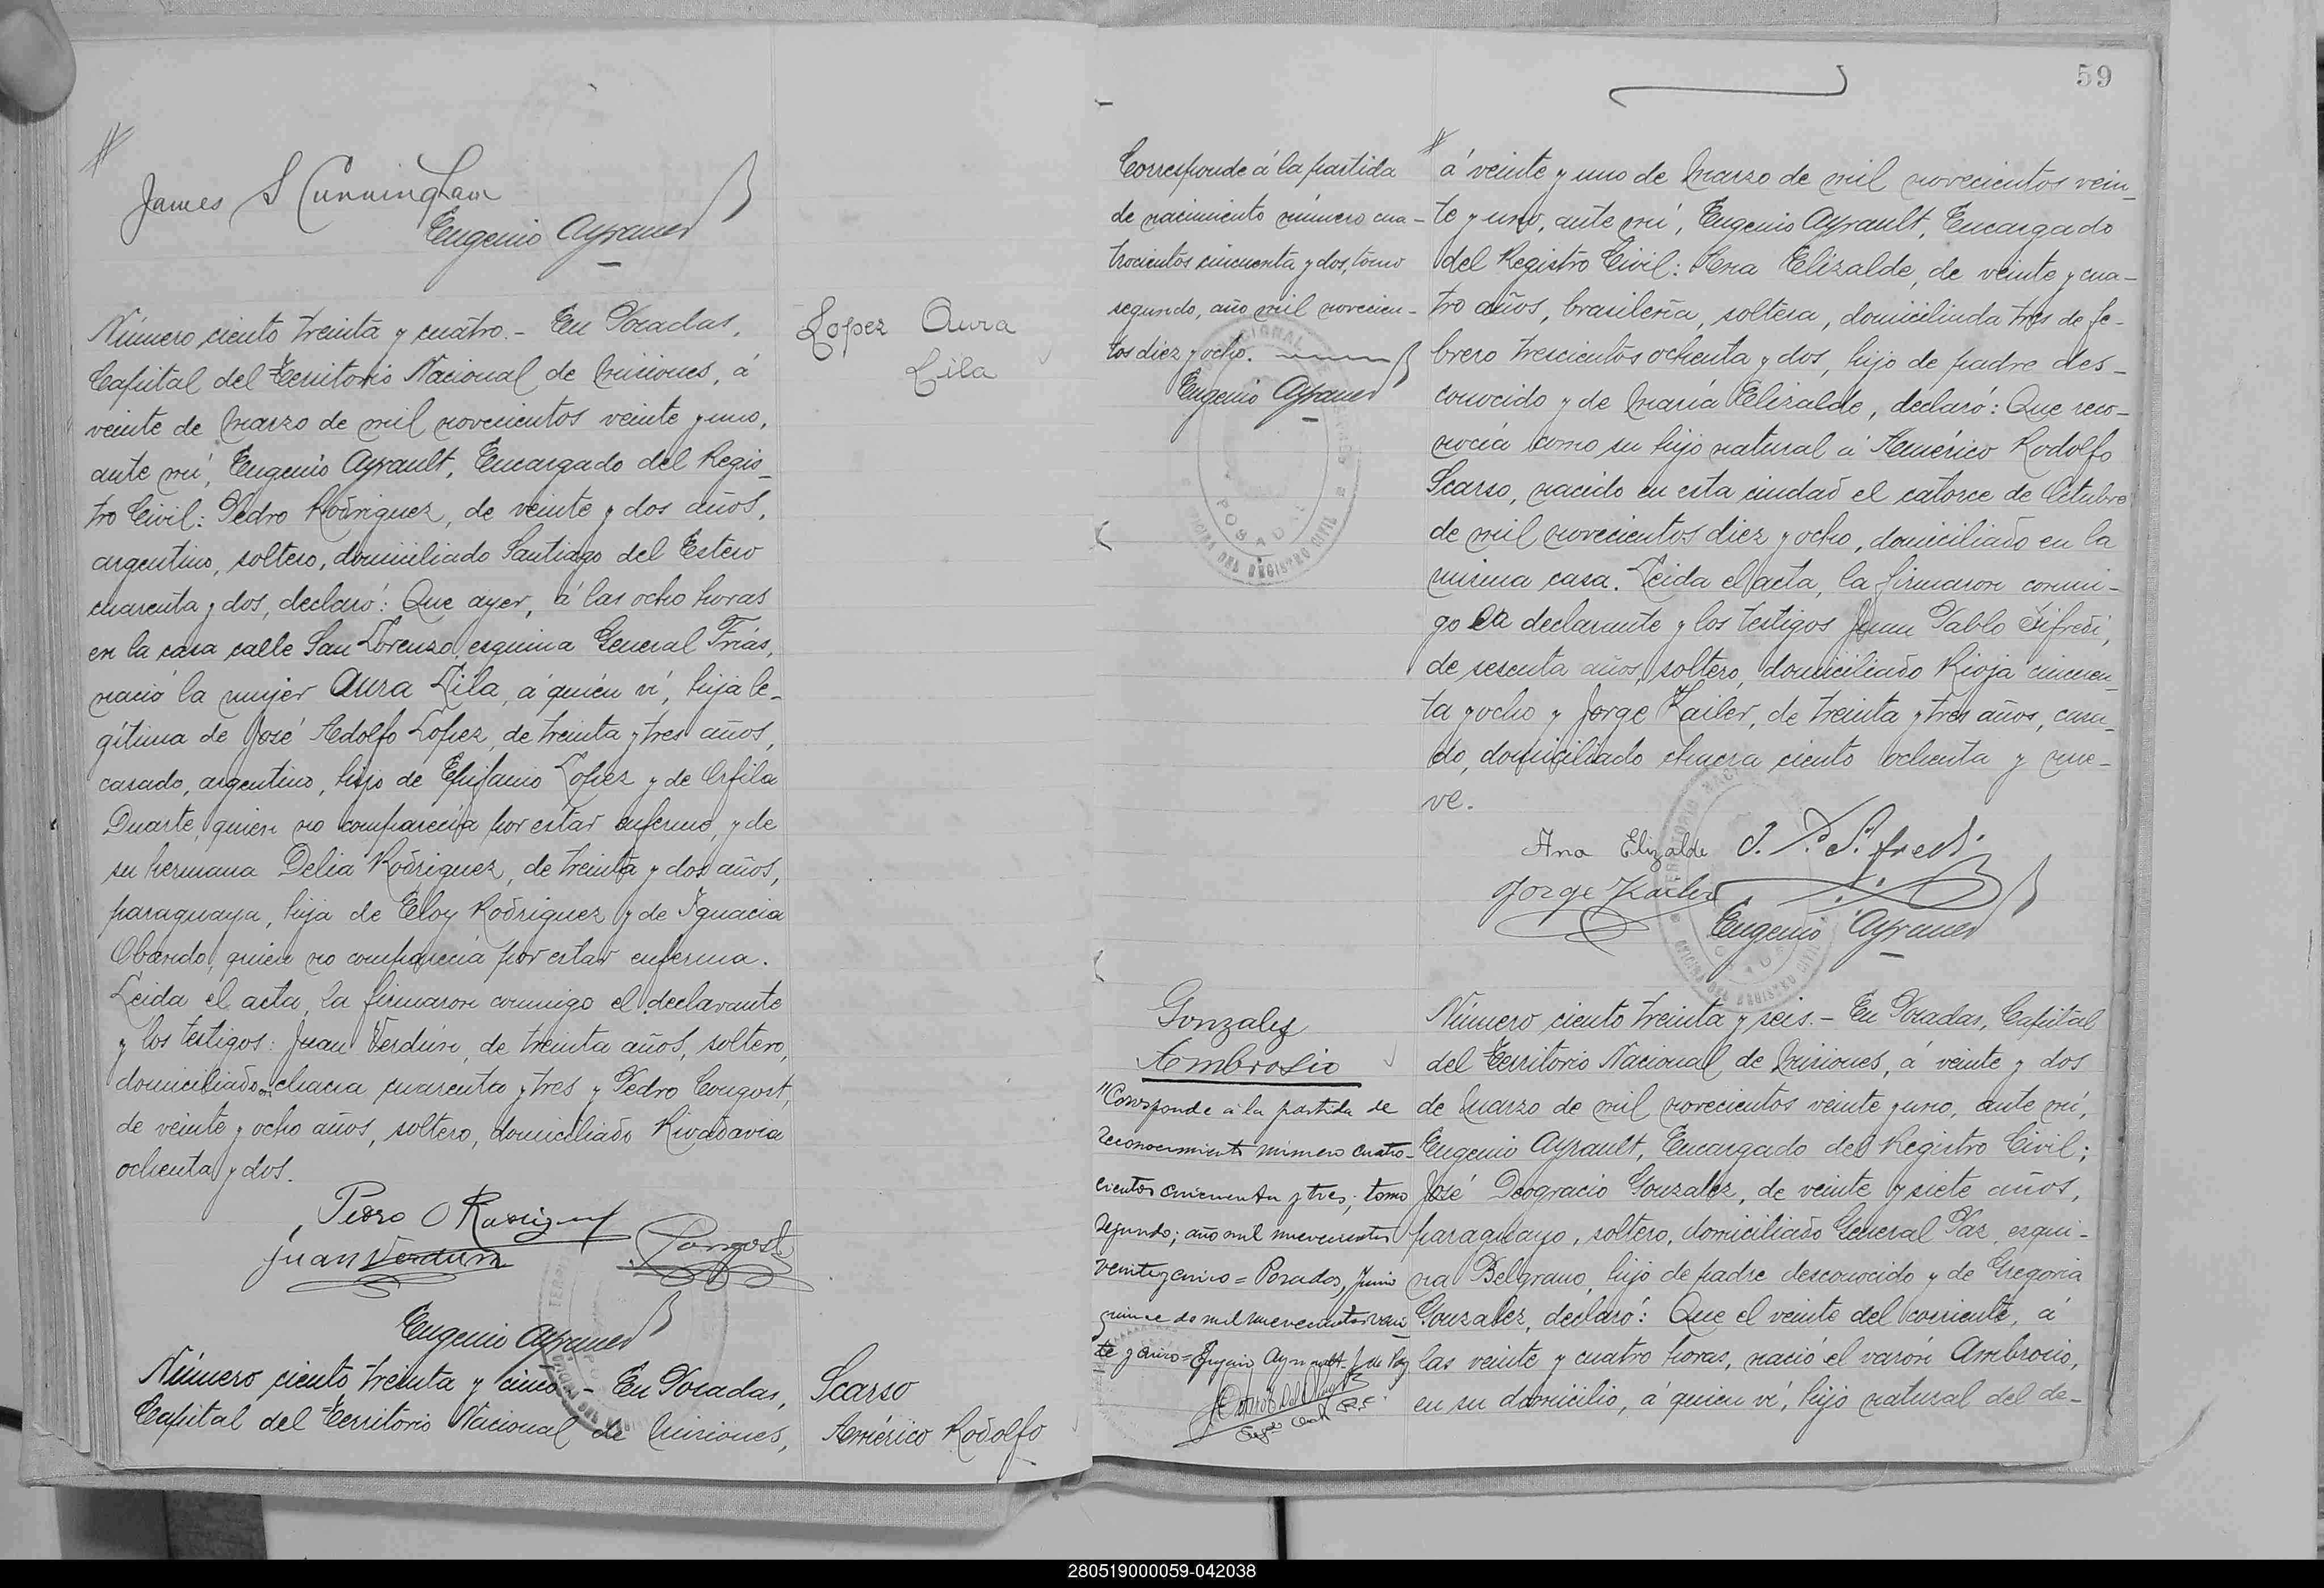 James S Cunningham
Eugenio Ayrault
Número ciento treinta y cuatro.- En Posadas,
Capital del Territorio Nacional de Misiones, á
veinte de Marzo de mil novecientos veinte y uno,
ante mí, Eugenio Ayrault, Encargado del Regis-
tro Civil: Pedro Rodriguez, de veinte y dos años,
argentino, soltero, domiciliado Santiago del Estero
cuarenta y dos, declaró: Que ayer, á las ocho horas
en la casa calle San Lorenzo esquina General Frias,
nació la mujer Aura Lila, á quién ví, hija le-
gítima de José Adolfo Lopez, de treinta y tres años,
casado, argentino, hijo de Epifanio Lopez y de Orfila
Duarte, quien no comparecía por estar enfermo, y de
su hermana Delia Rodriguez, de treinta y dos años,
paraguaya, hija de Eloy Rodriguez y de Ignacia
Obando, quien no comparecía por estar enferma.
Leida el acta, la firmaron conmigo el declarante
y los testigos: Juan Verdún, de treinta años, soltero,
domiciliado en chacra cuarenta y tres y Pedro Congost,
de veinte y ocho años, soltero, domiciliado Rivadavia
ochenta y dos.
Pedro O Rodriguez
Juan Verdun P Congost
Eugenio Ayrault
Número ciento treinta y cinco - En Posadas,
Capital del Territorio Nacional de Misiones,
Lopez Aura
Lila
Scarso
Américo Rodolfo
59
Corresponde á la partida
de nacimiento número cua-
trocientos cincuenta y dos, tomo
segundo, año mil novecien-
tos diez y ocho.
Eugenio Ayrault
á veinte y uno de Marzo de mil novecientos vein-
te y uno, ante mí, Eugenio Ayrault, Encargado
del Registro Civil: Ana Elizalde, de veinte y cua-
tro años, brasileña, soltera, domiciliada tres de fe-
brero trescientos ochenta y dos, hijo de padre des-
conocido y de María Elizalde, declaró: Que reco-
nocía como su hijo natural á Américo Rodolfo
Scarso, nacido en esta ciudad el catorce de Octubre
de mil novecientos diez y ocho, domiciliado en la
misma casa. Leida el acta, la firmaron conmi-
go la declarante y los testigos Juan Pablo Sifredi,
de sesenta años, soltero, domiciliado Rioja cincuen-
ta y ocho y Jorge Kailer, de treinta y tres años, casa-
do, domiciliado chacra ciento ochenta y nue-
ve.
Ana Elizalde J. P. Sifredi
Jorge Kailer
Eugenio Ayrault
Gonzalez
Ambrosio
"Corresponde á la partida de
reconocimiento número cuatro-
cientos cincuenta y tres; tomo
segundo; año mil novecientos
veinte y cinco = Posadas, Junio
quince de mil novecientos vein-
te y cinco = Eugenio Ayrault - J. de Paz
Número ciento treinta y seis.- En Posadas, Capital
del Territorio Nacional de Misiones, á veinte y dos
de Marzo de mil novecientos veinte y uno, ante mí,
Eugenio Ayrault, Encargado del Registro Civil;
José Deogracio Gonzalez, de veinte y siete años,
paraguayo, soltero, domiciliado General Paz, esqui-
na Belgrano, hijo de padre desconocido y de Gregoria
Gonzalez, declaró: Que el veinte del corriente, á
las veinte y cuatro horas, nació el varón Ambrosio,
en su domicilio, á quien ví, hijo natural del de-
280519000059-042038